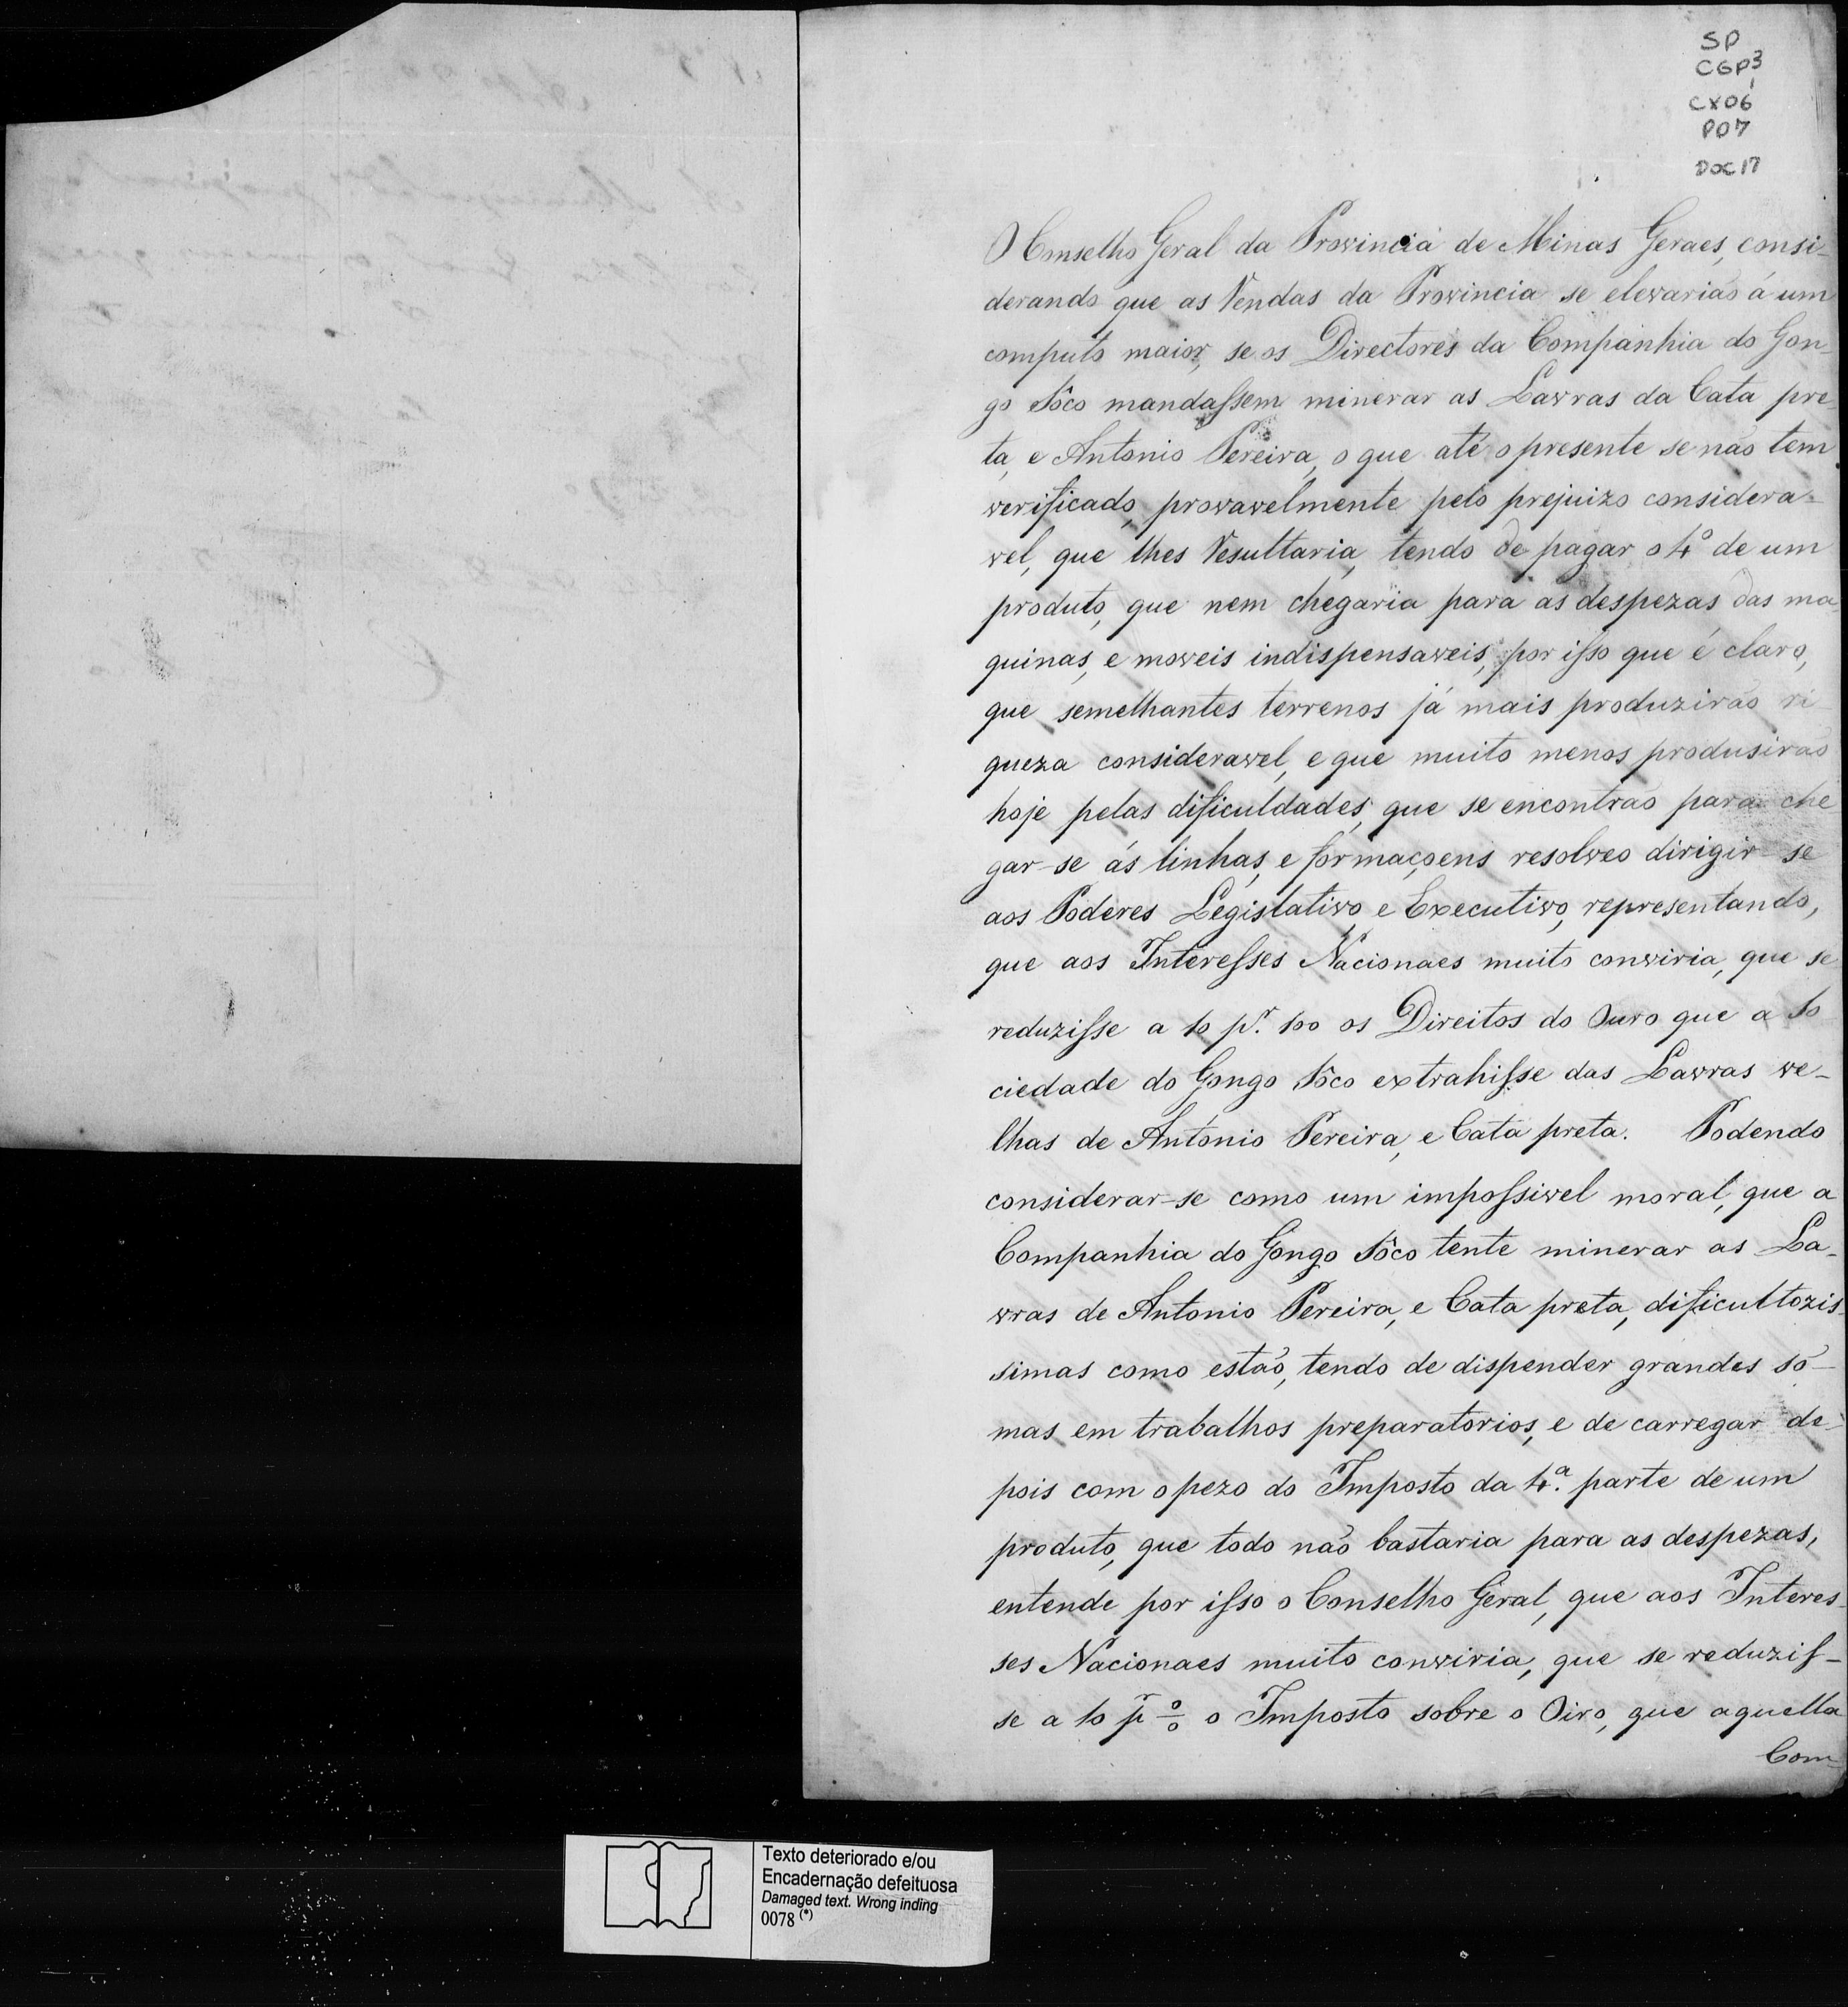 SP
CGP3
CX06
P07
DOC17
O Conselho Geral da Provincia de Minas Geraes, consi-
derando que as Rendas da Provincia se elevarião á um
computo maior, se os Directores da Companhia do Gon-
go Sôco mandassem minerar as Lavras da Cata pre-
ta, e Antonio Pereira, o que até o presente se não tem
verificado, provavelmente pelo prejuizo considera-
vel, que lhes resultaria, tendo de pagar o 4º de um
produto, que nem chegaria para as despezas das ma
quinas, e moveis indispensaveis, por isso que é claro,
que semelhantes terrenos já mais produzirão ri
queza consideravel, e que muito menos produsirão
hoje pelas dificuldades, que se encontrão para che
gar-se ás linhas, e formaçoens resolveo dirigir-se
aos Poderes Legislativo, e Executivo, representando,
que aos Interesses Nacionaes muito conviria, que se
reduzisse a 10 pr. 100 os Direitos do Ouro que a So
ciedade do Gongo Sôco extrahisse das Lavras ve-
lhas de Antonio Pereira, e Cata preta. Podendo
considerar-se como um impossivel moral, que a
Companhia do Gongo Sôco tente minerar as La-
vras de Antonio Pereira, e Cata preta, dificultozis-
simas como estão, tendo de dispender grandes só-
mas em trabalhos preparatorios, e de carregar de-
pois com o pezo do Imposto da 4.ª parte de um
produto, que todo não bastaria para as despezas,
entende por isso o Conselho Geral, que aos Interes-
ses Nacionaes muito conviria, que se reduzis-
se a 10 pr % o Imposto sobre o Oiro, que aquella
Com-
Texto deteriorado e/ou
Encadernação defeituosa
Damaged text. Wrong inding
0078 (*)